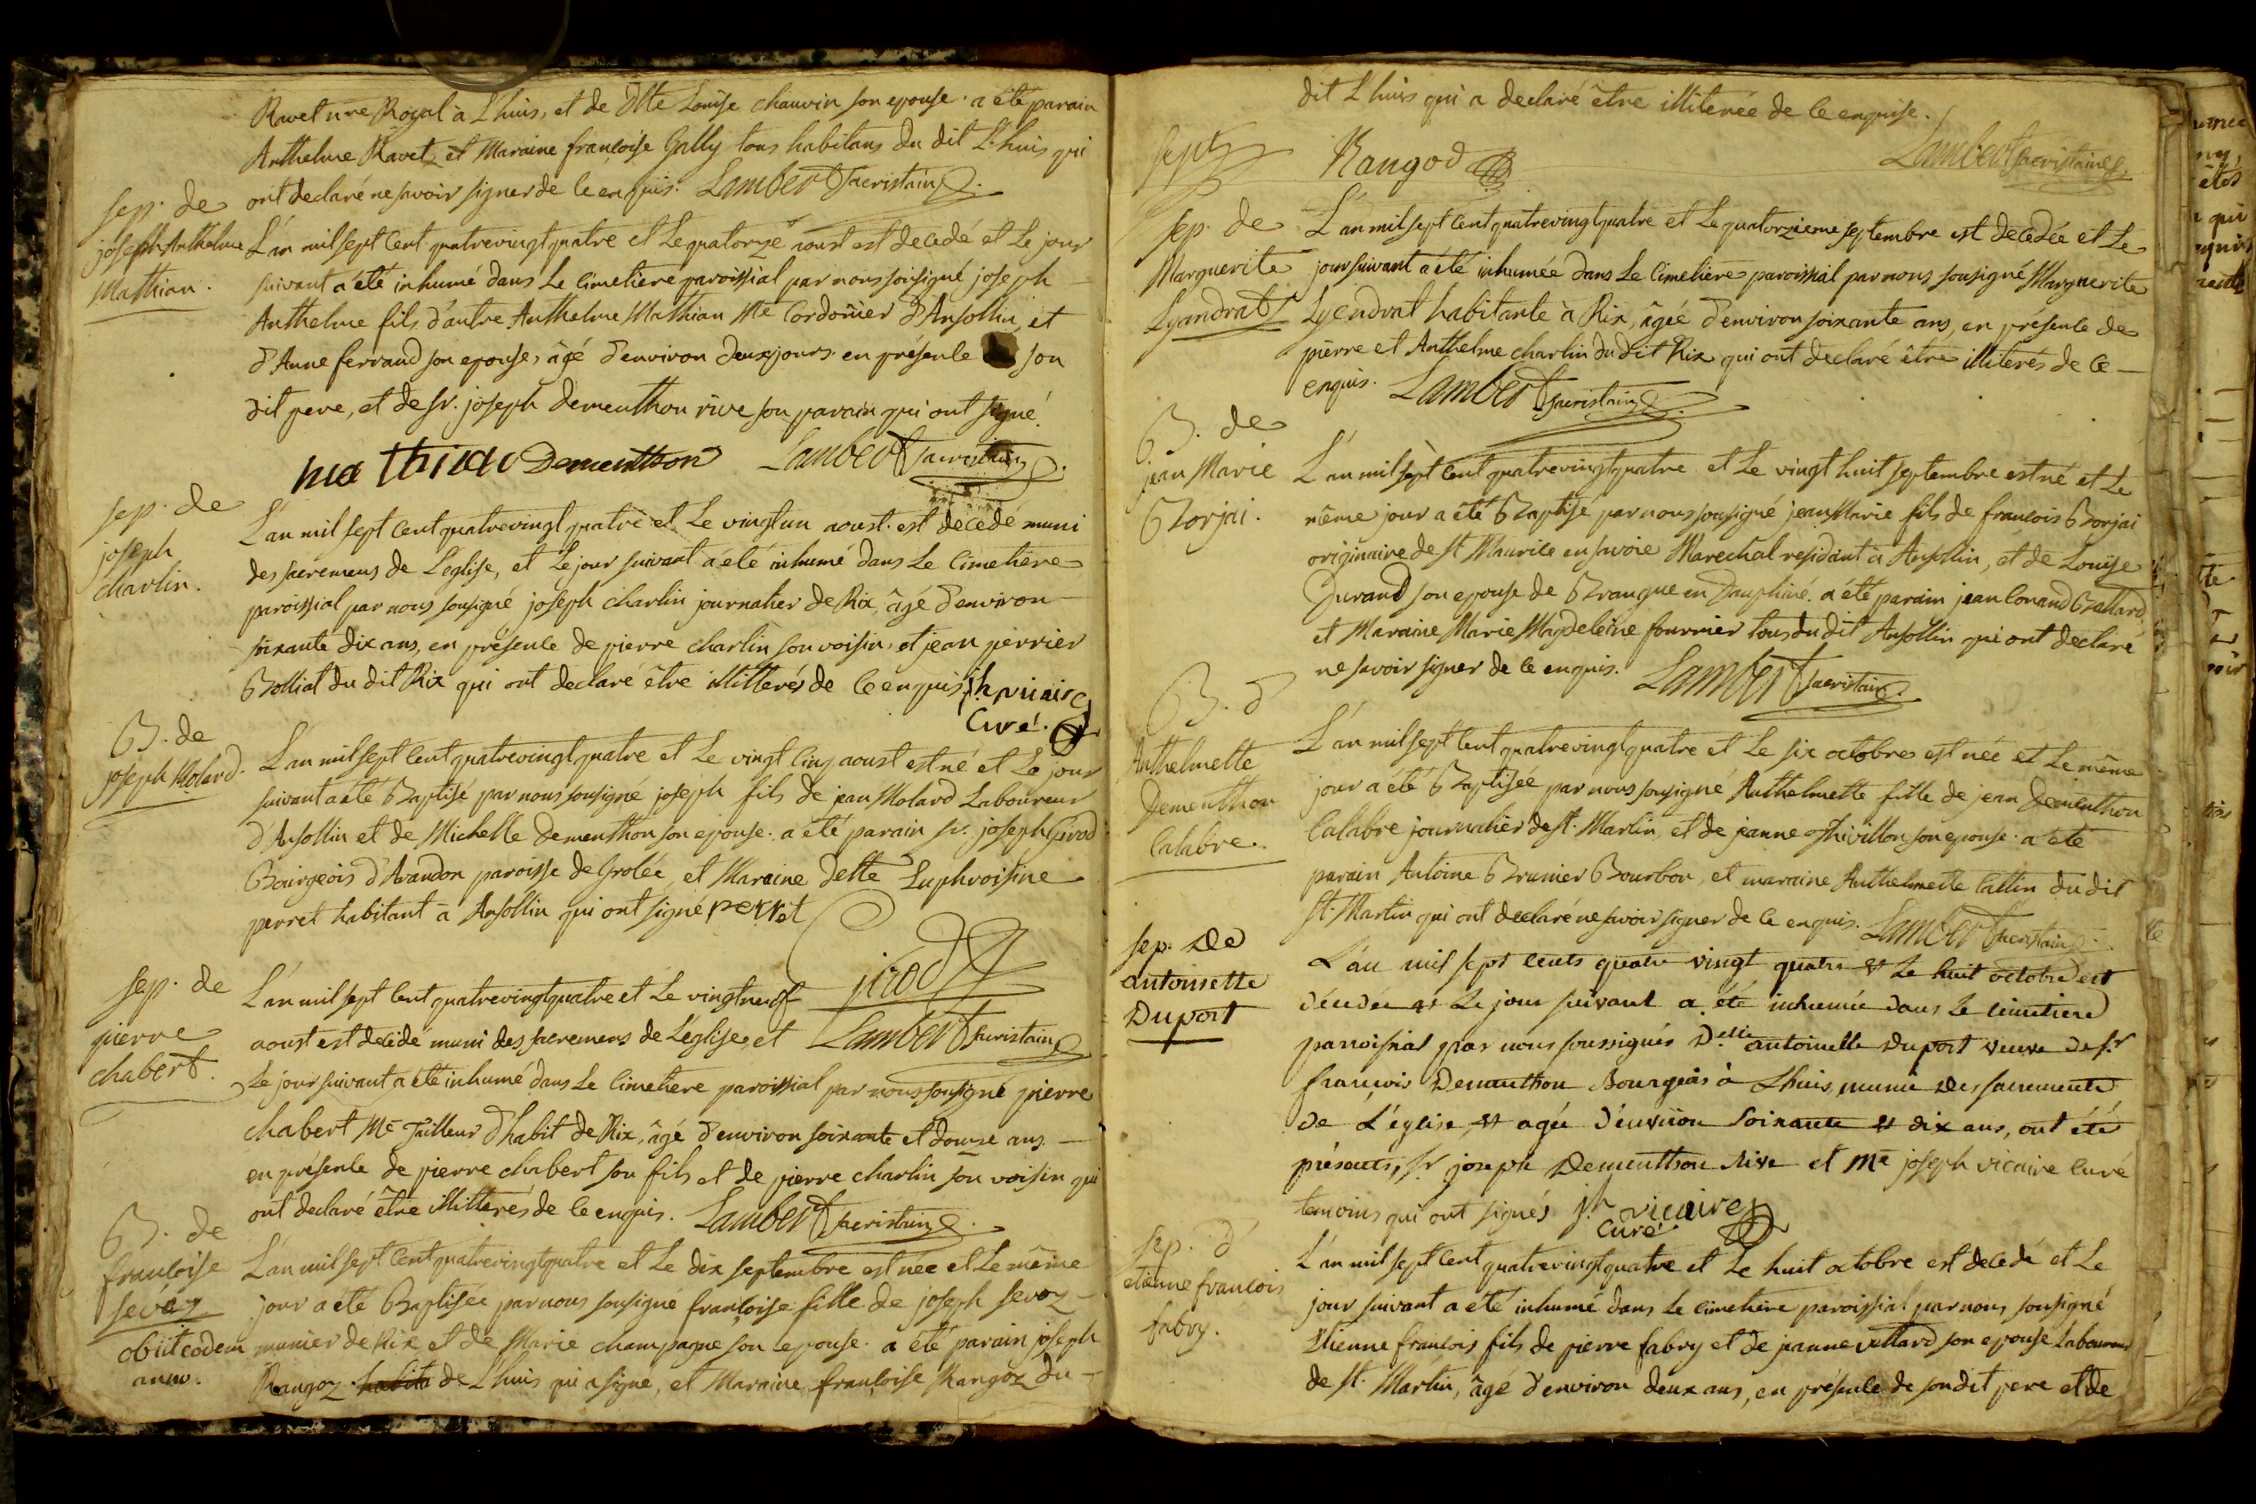 Ravet nre Royal à L'huis, et de Dlle Louise chauvin son epouse. a été parain
Anthelme Ravet, et Maraine françoise Gally tous habitans du dit L'huis qui
ont declaré ne savoir signer de ce enquis. Lambert Sacristain
sep. de
joseph Anthelme
Mathian.
L'an mil sept cent quatrevingt quatre et Le quatorze aoust est decedé et Le jour
suivant a été inhumé dans Le Cimetiere paroissial par nous soisigné joseph
Anthelme fils d'autre Anthelme Mathian Me Cordoñier d'Ansollin, et
d'Anne ferrand son epouse, âgé d'environ deux jours. en présence son
dit pere, et de sr. joseph dementhon rive son parain qui ont signé.
mathian Dementhon Lambert Sacristain
sep. de
joseph
charlin.
L'an mil sept cent quatrevingt quatre et Le vingt un aoust. est decedé muni
des sacremens de L'eglise, et Le jour suivant a été inhumé dans Le Cimetiere
paroissial par nous sousigné joseph charlin journalier de Rix, âgé d'environ
soixante dix ans, en présence de pierre charlin son voisin, et jean perrier
Bolliat du dit Rix qui ont declaré être illitterés de ce enquis jh vicaire
Curé.
B. de
joseph Molard.
L'an mil sept cent quatrevingt quatre et Le vingt cinq aoust est né et Le jour
suivant a été Baptisé par nous sousigné joseph fils de jean Molard Laboureur
d'Ansollin et de Michelle Dementhon son epouse. a été parain sr. joseph Girod
Bourgeois d'Arandon paroisse de Grolée, et Maraine delle Euphroisine
perret habitant à Ansollin qui ont signé perret
jirod
sep. de
pierre
chabert.
L'an mil sept cent quatrevingt quatre et Le vingt neuf
aoust est decedé muni des sacremens de L'église, et Lambert Sacristain
Le jour suivant a été inhumé dans Le Cimetiere paroissial par nous sousigné pierre
chabert Me Tailleur d'habit de Rix, âgé d'environ soixante et douze ans
en présence de pierre chabert son fils et de pierre charlin son voisin qui
ont declaré être illitterés de ce enquis. Lambert Sacristain
B. de
françoise
sevoz
obiit eodem
anno.
L'an mil sept cent quatrevingt quatre et Le dix septembre est née et Le même
jour a été Baptisée par nous sousigné françoise fille de joseph sevoz
munier de Rix et de Marie champagne son epouse. a été parain joseph
Rangoz de L'huis qui a signé, et Maraine françoise Rangoz du
dit L'huis qui a declaré être illiterée de ce enquise.
Rangod Lambert Sacristain
sep. de
Marguerite
Lyandrat
L'an mil sept cent quatrevingt quatre et Le quatorzieme septembre est decedée et Le
jour suivant a été inhumée dans Le Cimetiere paroissial par nous sousigné Marguerite
Lyendrat habitante à Rix, âgée d'environ soixante ans, en présence de
pierre et Anthelme charlin du dit Rix qui ont declaré être illiterés de ce
enquis. Lambert Sacristain
B. de
jean Marie
Borjai.
L'an mil sept cent quatrevingt quatre et Le vingt huit septembre est né et Le
même jour a été Baptisé par nous sousigné jean Marie fils de francois Borjai
originaire de st Maurice en savoie Marechal residant à Ansollin, et de Louise
Durand son epouse de Brangue en Dauphiné. a été parain jean Conand Ballard,
et Maraine Marie Magdeleine fourrier tous du dit Ansollin qui ont declaré
ne savoir signer de ce enquis. Lambert Sacristain
B. d
Anthelmette
Dementhon
Calabre.
L'an mil sept cent quatrevingt quatre et Le six octobre est née et Le même
jour a été Baptisée par nous sousigné Anthelmette fille de jean Dementhon
Calabre journalier de st. Martin, et de jeanne Thivillon son epouse. a été
parain Antoine Brunier Bourbon, et maraine Anthelmette Cattin du dit
st. Martin qui ont declaré ne savoir signer de ce enquis. Lambert Sacristain
sep. De
antoinette
Duport
L'an mil sept cents quatre vingt quatre et Le huit octobre est
décédée et Le jour suivant a été inhumée dans Le cimetiere
parroissial par nous soussignés Delle antoinette Duport veuve de sr
françois Dementhon Bourgeois à Lhuis, munie Des sacrements
De L'église, et agée d'environ soixante et dix ans, ont été
présents, sr. joseph Dementhon Rive et Me joseph vicaire curé
temoins qui ont signés jh vicaire
Curé
sep. d'
etienne francois
fabry.
L'an mil sept cent quatrevingt quatre et Le huit octobre est decedé et Le
jour suivant a été inhumé dans Le Cimetiere paroissial par nous sousigné
Etienne francois fils de pierre fabry et de jeanne vettard son epouse Laboureur
de st. Martin, âgé d'environ deux ans, en présence de son dit pere et de